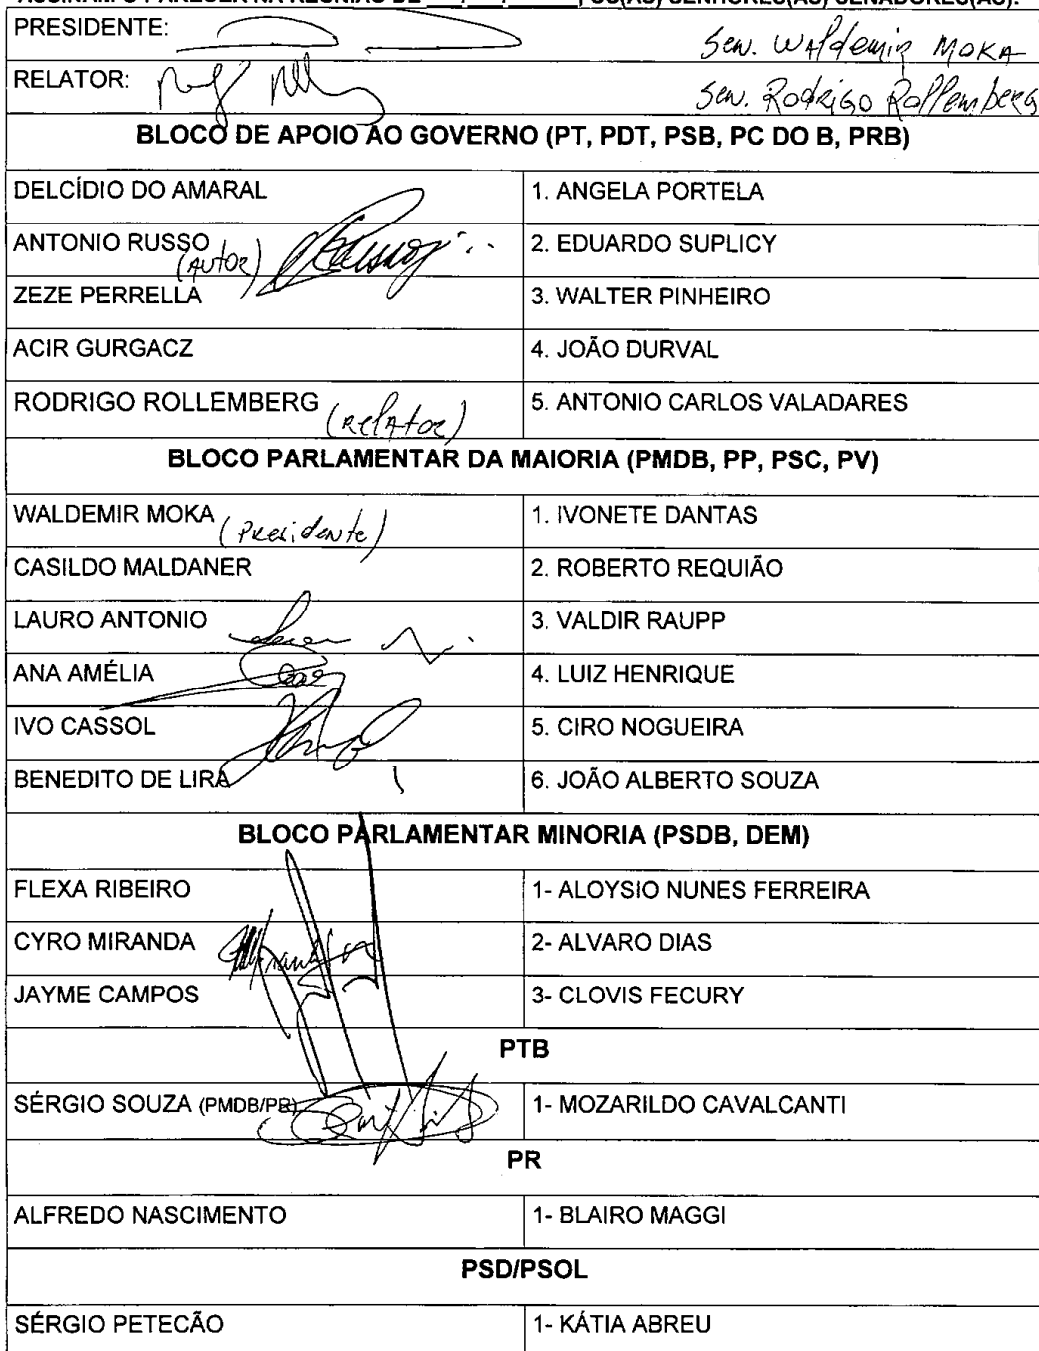 ASSINAM O PARECER NA REUNIÃO DE ___/___/______, OS(AS) SENHORES(AS) SENADORES(AS):
PRESIDENTE: Sen. Waldemir MOKA
RELATOR: Sen. Rodrigo Rollemberg
BLOCO DE APOIO AO GOVERNO (PT, PDT, PSB, PC DO B, PRB)
DELCÍDIO DO AMARAL 1. ANGELA PORTELA
ANTONIO RUSSO (AUTOR) 2. EDUARDO SUPLICY
ZEZE PERRELLA 3. WALTER PINHEIRO
ACIR GURGACZ 4. JOÃO DURVAL
RODRIGO ROLLEMBERG (Relator) 5. ANTONIO CARLOS VALADARES
BLOCO PARLAMENTAR DA MAIORIA (PMDB, PP, PSC, PV)
WALDEMIR MOKA (Presidente) 1. IVONETE DANTAS
CASILDO MALDANER 2. ROBERTO REQUIÃO
LAURO ANTONIO 3. VALDIR RAUPP
ANA AMÉLIA 4. LUIZ HENRIQUE
IVO CASSOL 5. CIRO NOGUEIRA
BENEDITO DE LIRA 6. JOÃO ALBERTO SOUZA
BLOCO PARLAMENTAR MINORIA (PSDB, DEM)
FLEXA RIBEIRO 1- ALOYSIO NUNES FERREIRA
CYRO MIRANDA 2- ALVARO DIAS
JAYME CAMPOS 3- CLOVIS FECURY
PTB
SÉRGIO SOUZA (PMDB/PR) 1- MOZARILDO CAVALCANTI
PR
ALFREDO NASCIMENTO 1- BLAIRO MAGGI
PSD/PSOL
SÉRGIO PETECÃO 1- KÁTIA ABREU